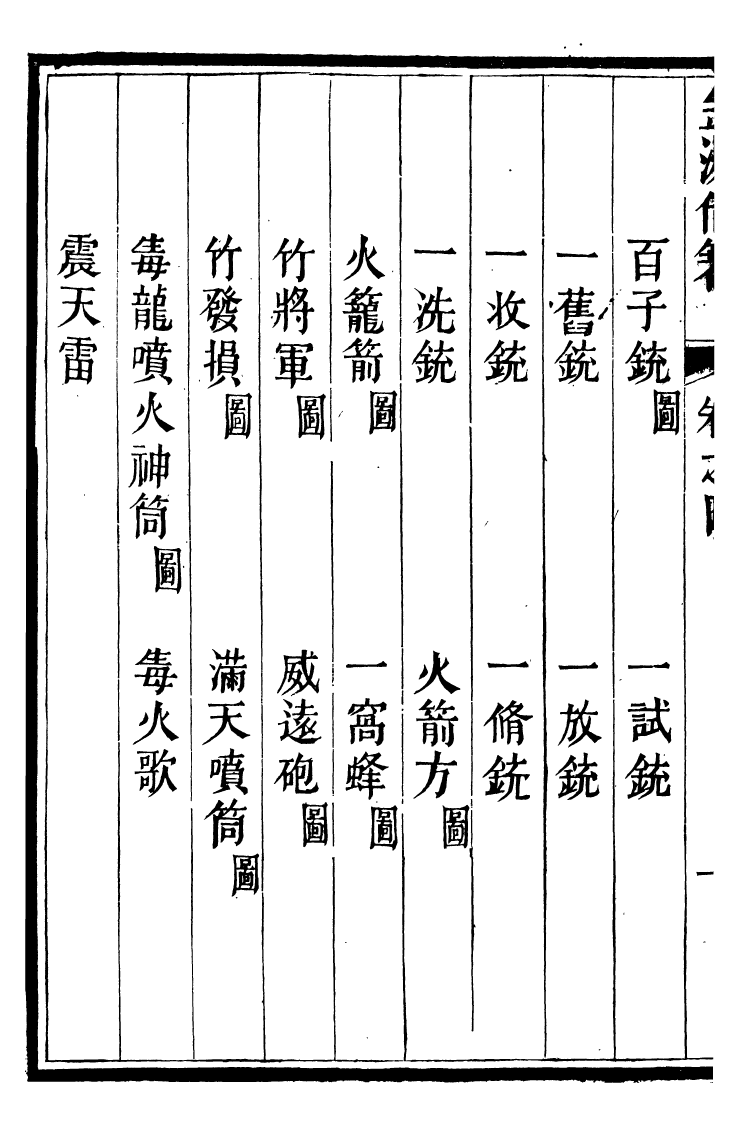 百子銃圖 一試銃
一舊銃 一放銃
一收銃 一脩銃
一洗銃 火箭方圖
火籠箭圖 一窩蜂圖
竹將軍圖 威遠砲圖
竹發損圖 滿天噴筒圖
毒龍噴火神筒圖 毒火歌
震天雷